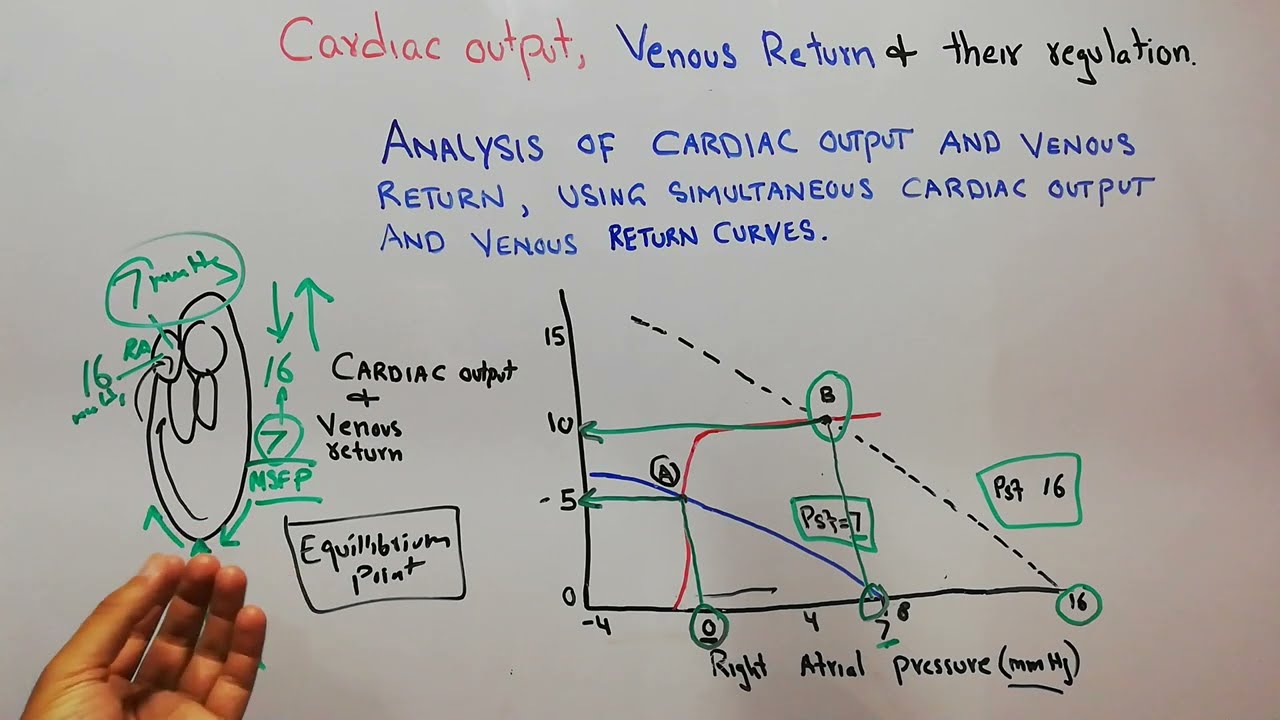 Cardiac output, Venous Return & their regulation.
ANALYSIS OF CARDIAC OUTPUT AND VENOUS
RETURN, USING SIMULTANEOUS CARDIAC OUTPUT
AND VENOUS RETURN CURVES.
7 mmHg
RA
16
16
7
MSFP
CARDIAC output
&
Venous
return
Equillibrium
Point
15
10
- 5
0
-4
0
4
7
8
16
A
B
Psf=7
Psf 16
Right Atrial pressure (mmHg)